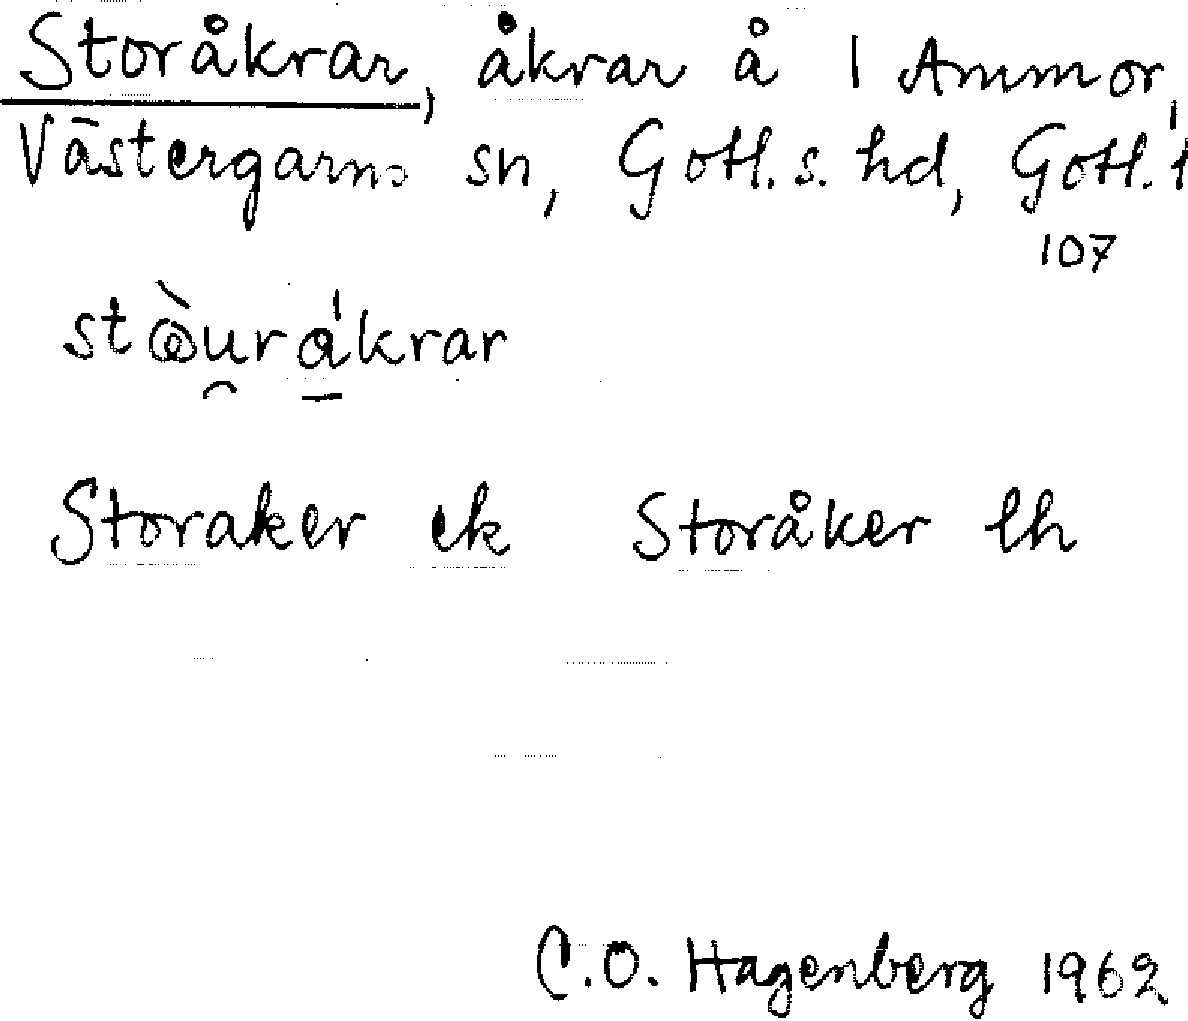 Storåkrar, åkrar å 1 Ammor,
Västergarns sn, Gotl. s. hd, Gotl. l
107
stòurákrar
Storaker ek Storåker lh
C.O. Hagenberg 1962